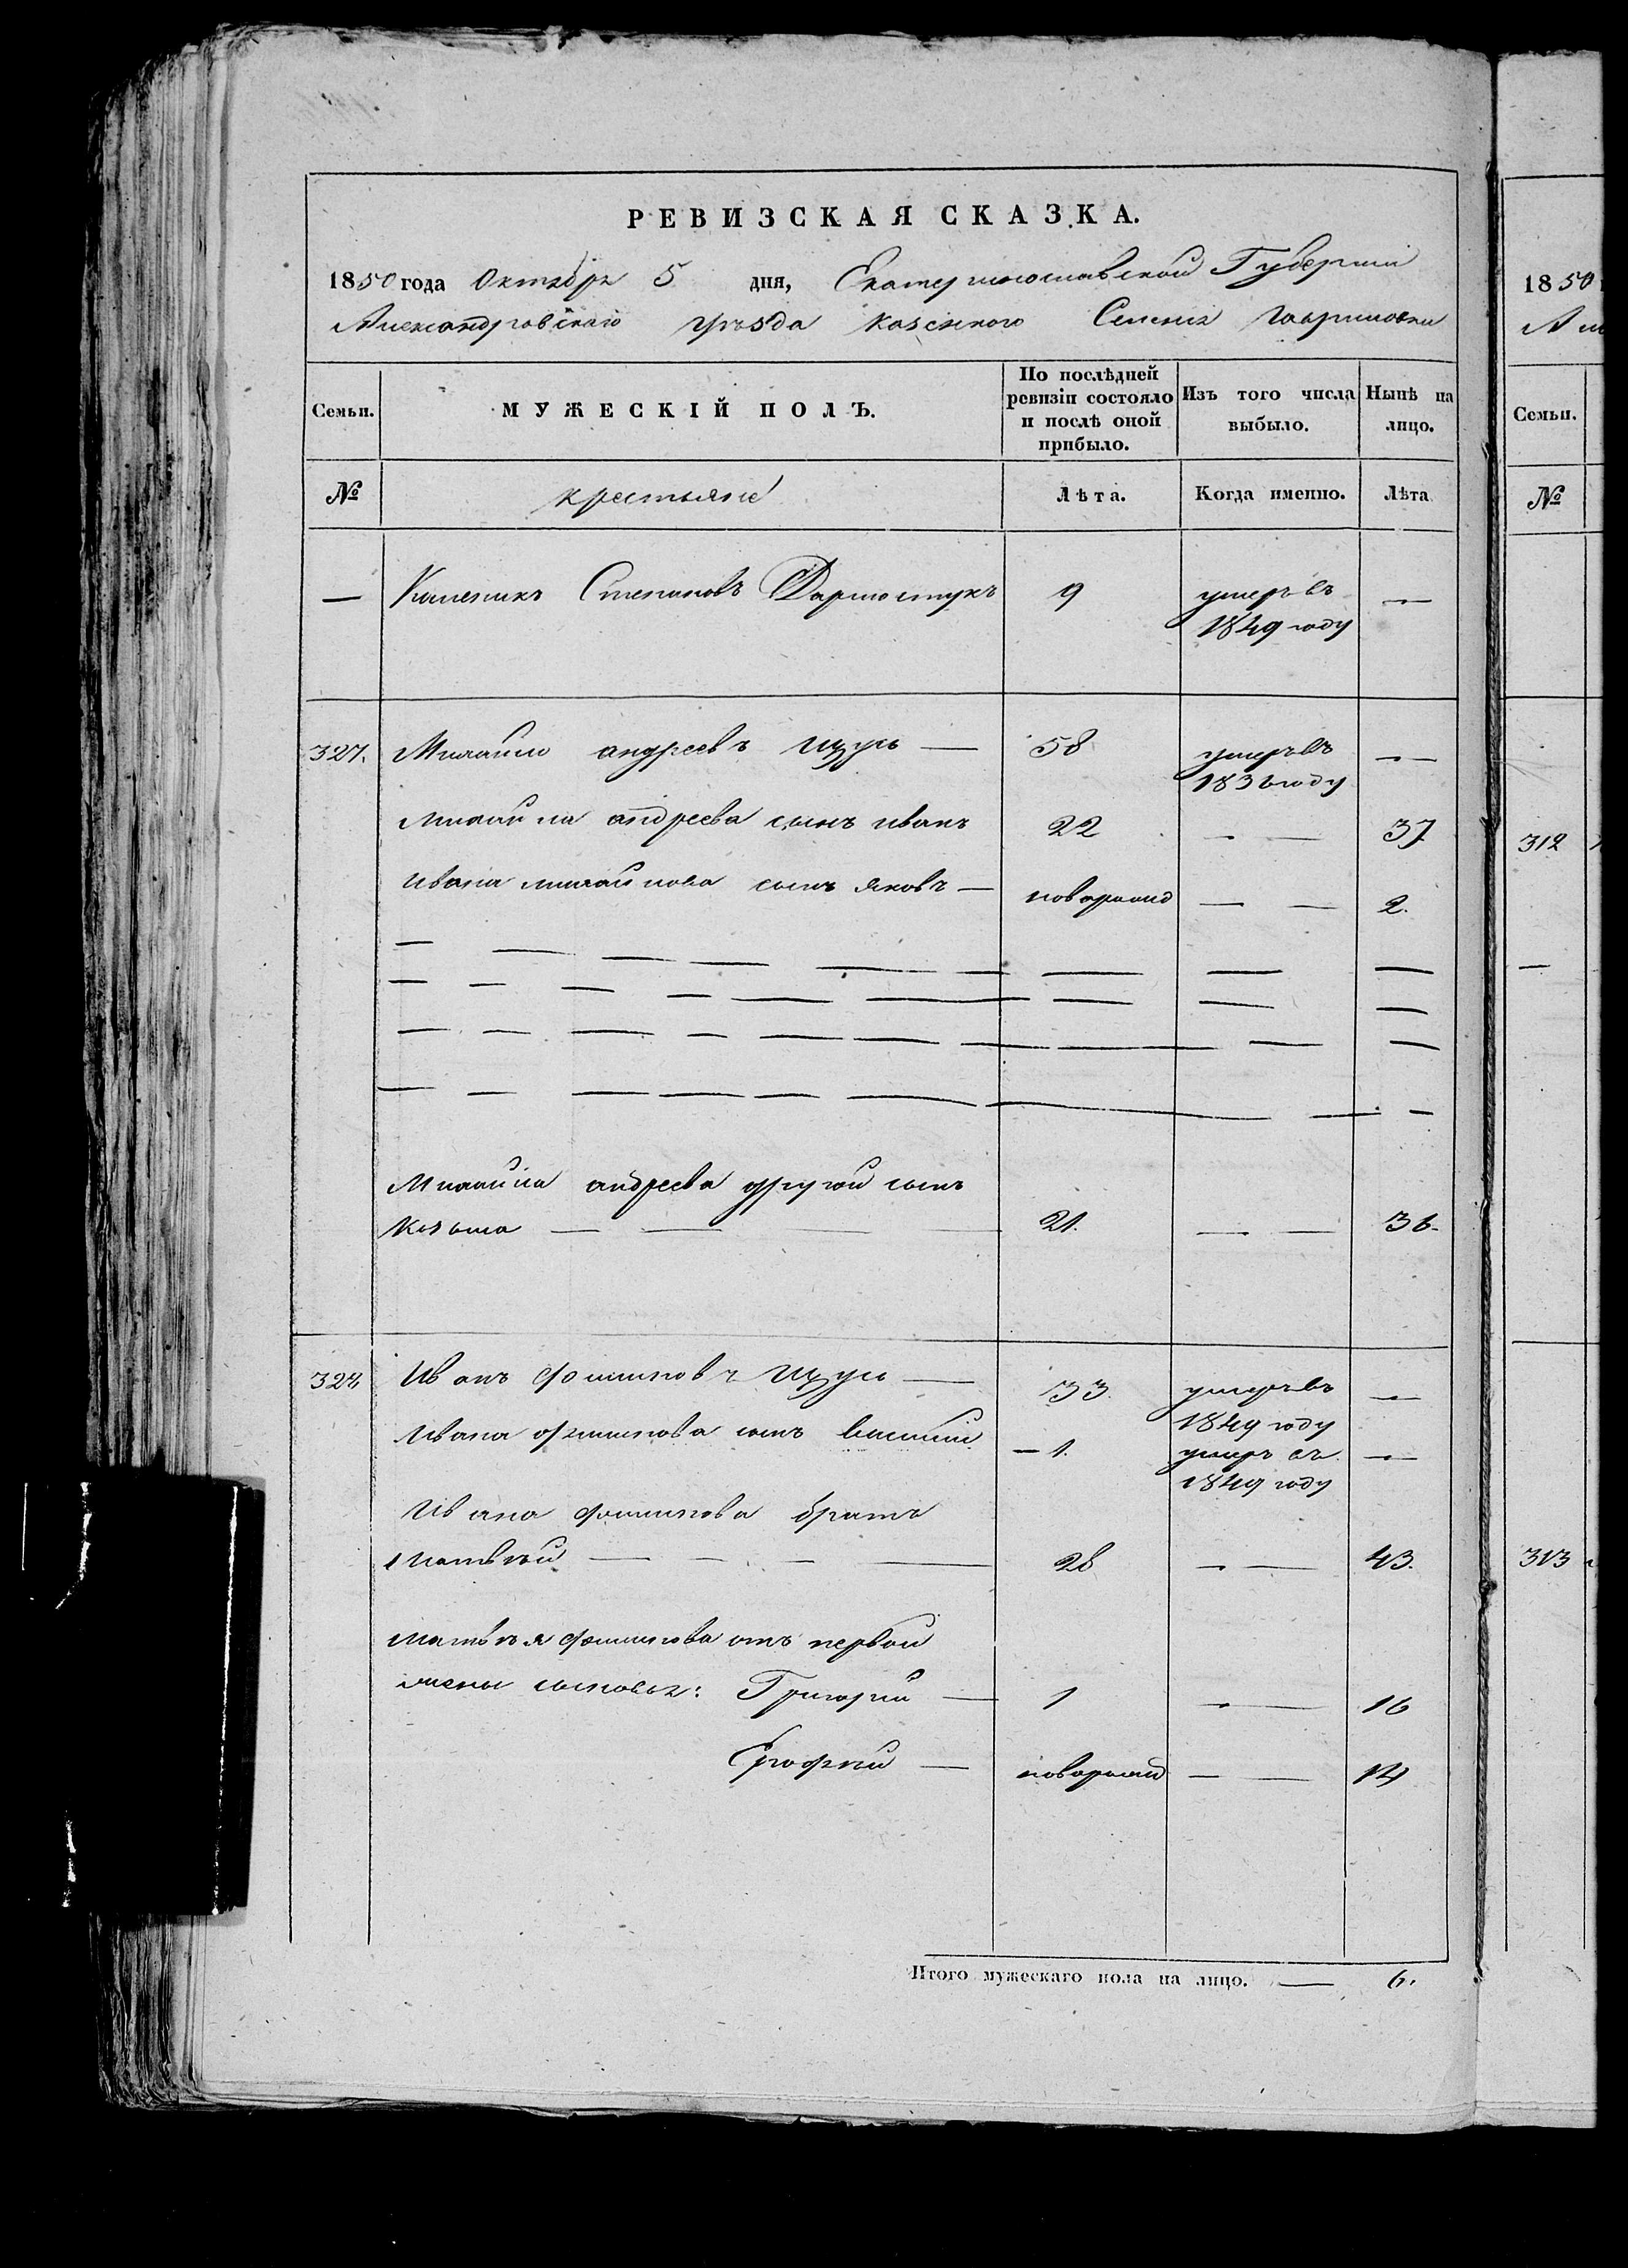 РЕВИЗСКАЯ СКАЗКА.
1850 года Октября 5 дня, Екатеринославской Губернии
Александровскаго уѣзда казенного Селения Гавриловки
Семьи.
МУЖЕСКІЙ ПОЛЪ.
По послѣдней
ревизіи состояло
и послѣ оной
прибыло.
Изъ того числа
выбыло.
Нынѣ на
лицо.
№
крестьяне
Лѣта.
Когда именно.
Лѣта
— Степановъ 9 умеръ въ —
1849 году
327. Михайло андреевъ Щусь — 58 умеръ въ —
1836 году
михайла андреева сынъ иванъ 22 — — 37
ивана михайлова сынъ яковъ — новорожд — — 2.
Михайла андреева другой сынъ
Козьма — — — — 21. — — 36.
328 Иванъ Фоминовъ Щусь — 33. умеръ въ —
1849 году
Ивана фоминова сынъ Василий — 1. умеръ въ —
1849 году
Ивана фоминова братъ
Матвѣй — — — — 28 — — 43.
матвѣя фоминова отъ первой
жены сыновья: Григорій — 1 — — 16
Ерофѣй — новорожд — — 14
Итого мужескаго пола на лицо. — 6.
1850
Семьи.
№
312
—
313